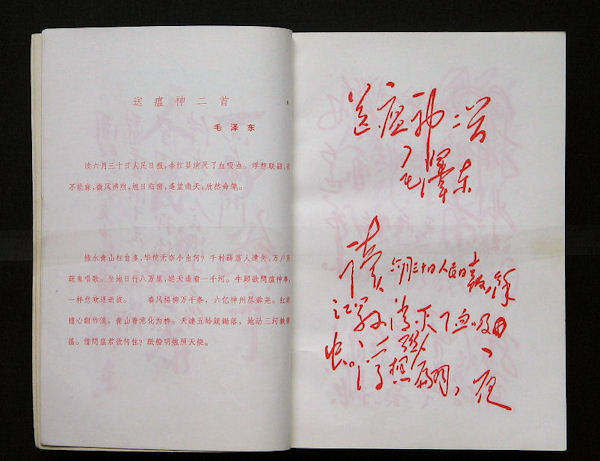 送瘟神二首
毛泽东
读六月三十日人民日报,余江县消灭了血吸虫。浮想联翩,
不能寐,微风拂煦,旭日临窗,遥望南天,欣然命笔。
绿水青山枉自多,华佗无奈小虫何?千村薜荔人遗矢,万户
疏鬼唱歌。坐地日行八万里,巡天遥看一千河。牛郎欲問瘟神事,
一样悲欢逐逝波。 春风杨柳万千条,六亿神州尽舜尧。红
随心翻作浪,青山着意化为桥。天连五岭銀鋤落,地动三河鉄
摇。借問瘟君欲何往?紙船明烛照天烧。
送瘟神二首
毛澤东
讀六月三十日人民日報,余
江縣消灭了血吸
虫。浮想联翩,夜